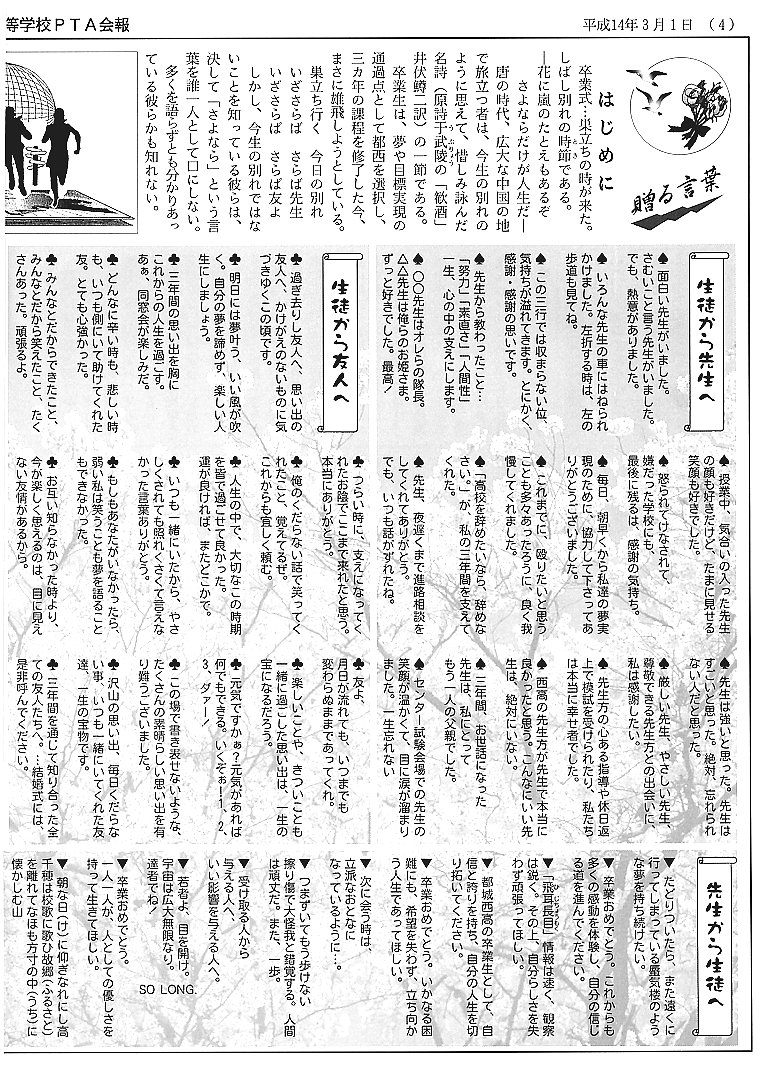 等学校PTA会報
平成14年3月1日 (4)
贈る言葉
はじめに
卒業式…巣立ちの時が来た。
しばし別れの時節である。
―花に嵐のたとえもあるぞ
さよならだけが人生だ―
唐の時代、広大な中国の地
で旅立つ者は、今生の別れの
ように思えて、惜しみ詠んだ
名詩(原詩于武陵の「歓酒」
井伏鱒二訳)の一節である。
卒業生は、夢や目標実現の
通過点として都西を選択し、
三カ年の課程を修了した今、
まさに雄飛しようとしている。
巣立ち行く 今日の別れ
いざさらば さらば先生
いざさらば さらば友よ
しかし、今生の別れではな
いことを知っている彼らは、
決して「さよなら」という言
葉を誰一人として口にしない。
多くを語らずとも分かりあっ
ている彼らかも知れない。
生徒から先生へ
♠面白い先生がいました。
さむいこと言う先生がいました。
でも、熱意がありました。
♠いろんな先生の車にはねられ
かけました。左折する時は、左の
歩道も見てね。
♠この三行では収まらない位、
気持ちが溢れてきます。とにかく、
感謝・感謝の思いです。
♠先生から教わったこと…
「努力」「素直さ」「人間性」
一生、心の中の支えにします。
♠〇〇先生はオレらの隊長。
△△先生は俺らのお姫さま。
ずっと好きでした。最高!
♠授業中、気合いの入った先生
の顔も好きだけど、たまに見せる
笑顔も好きでした。
♠怒られてけなされて、
嫌だった学校にも、
最後に残るは、感謝の気持ち。
♠毎日、朝早くから私達の夢実
現のために、協力して下さってあ
りがとうございました。
♠これまでに、殴りたいと思う
ことも多々あったろうに、良く我
慢してくれました。
♠「高校を辞めたいなら、辞めな
さい。」が、私の三年間を支えて
くれた。
♠先生、夜遅くまで進路相談を
してくれてありがとう。
でも、いつも話がずれたね。
♠先生は強いと思った。先生は
すごいと思った。絶対、忘れられ
ない人だと思った。
♠厳しい先生、やさしい先生、
尊敬できる先生方との出会いに、
私は感謝したい。
♠先生方の心ある指導や休日返
上で模試を受けられたり、私たち
は本当に幸せ者でした。
♠西高の先生方が先生で本当に
良かったと思う。こんなにいい先
生は、絶対にいない。
♠三年間、お世話になった
先生は、私にとって
もう一人の父親でした。
♠センター試験会場での先生の
笑顔が温かくて、目に涙が溜まり
ました。一生忘れない
生徒から友人へ
♣過ぎ去りし友人へ、思い出の
友人へ、かけがえのないものに気
づきゆくこの頃です。
♣明日には夢叶う、いい風が吹
く。自分の夢を諦めず、楽しい人
生にしましょう。
♣三年間の思い出を胸に
これからの人生を過ごす。
あぁ、同窓会が楽しみだ。
♣どんなに辛い時も、悲しい時
も、いつも側にいて助けてくれた
友。とても心強かった。
♣みんなとだからできたこと、
みんなとだから笑えたこと、たく
さんあった。頑張るよ。
♣つらい時に、支えになってく
れたお陰でここまで来れたと思う。
本当にありがとう。
♣俺のくだらない話で笑ってく
れたこと、覚えてるぜ。
これからも宜しく頼む。
♣人生の中で、大切なこの時期
を皆で過ごせて良かった。
運が良ければ、またどこかで。
♣いつも一緒にいたから、やさ
しくされても照れくさくて言えな
かった言葉ありがとう。
♣もしもあなたがいなかったら、
弱い私は笑うことも夢を語ること
もできなかった。
♣お互い知らなかった時より、
今が楽しく思えるのは、目に見え
ない友情があるから。
♣友よ、
月日が流れても、いつまでも
変わらぬままであってくれ。
♣楽しいことや、きついことも
一緒に過ごした思い出は、一生の
宝になるだろう。
♣元気ですかぁ?元気があれば
何でもできる。いくぞぉ!1、2、
3、ダァー!
♣この場で書き表せないような、
たくさんの素晴らしい思い出を有
り難うございました。
♣沢山の思い出、毎日くだらな
い事、いつも一緒にいてくれた友
達、一生の宝物です。
♣三年間を通じて知り合った全
ての友人たちへ。…結婚式には、
是非呼んでください。
先生から生徒へ
▼たどりついたら、また遠くに
行ってしまっている蜃気楼のよう
な夢を持ち続けたい。
▼卒業おめでとう。これからも
多くの感動を体験し、自分の信じ
る道を進んでください。
▼「飛耳長目」情報は速く、観察
は鋭く。その上、自分らしさを失
わず頑張ってほしい。
▼都城西高の卒業生として、自
信と誇りを持ち、自分の人生を切
り拓いてください。
▼卒業おめでとう。いかなる困
難にも、希望を失わず、立ち向か
う人生であってほしい。
▼次に会う時は、
立派なおとなに
なっているように…。
▼つまずいてもう歩けない
擦り傷で大怪我と錯覚する。人間
は頑丈だ。また、一歩。
▼受け取る人から
与える人へ、
いい影響を与える人へ。
▼若者よ、目を開け。
宇宙は広大無限なり。
達者でね! SO LONG.
▼卒業おめでとう。
一人一人が、人としての優しさを
持って生きてほしい。
▼朝な日(け)に仰ぎなれにし高
千穂は校歌に歌ひ故郷(ふるさと)
を離れてなほも方寸の中(うち)に
懐かしむ山